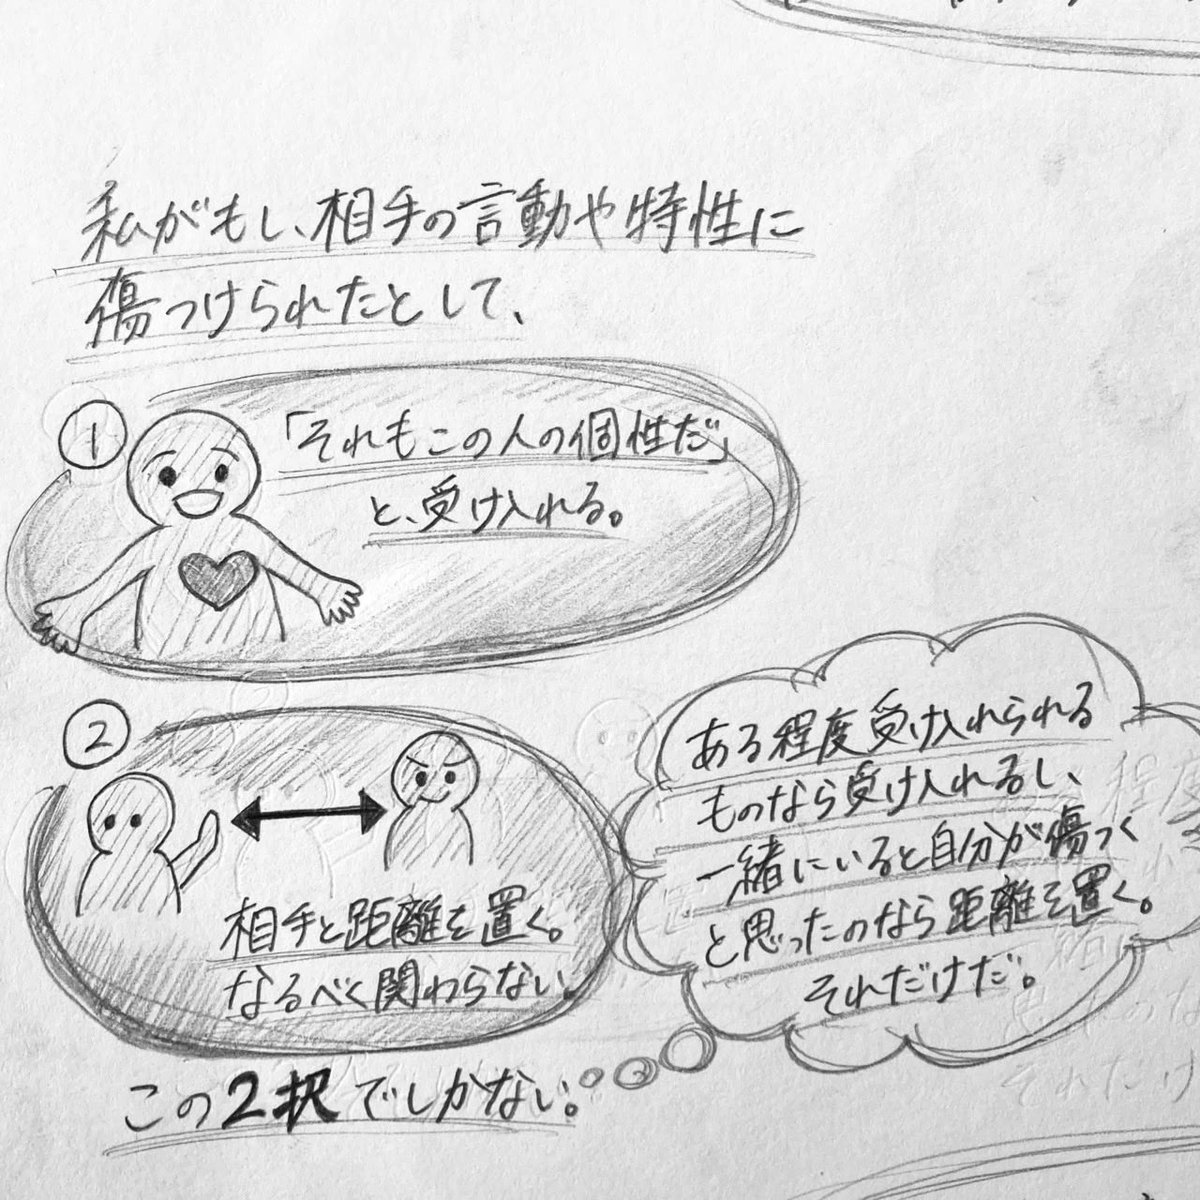 私がもし、相手の言動や特性に
傷つけられたとして、
①
「それもこの人の個性だ」
と、受け入れる。
②
相手と距離を置く。
なるべく関わらない。
ある程度受け入れられる
ものなら受け入れるし、
一緒にいると自分が傷つく
と思ったのなら距離を置く。
それだけだ。
この2択でしかない。